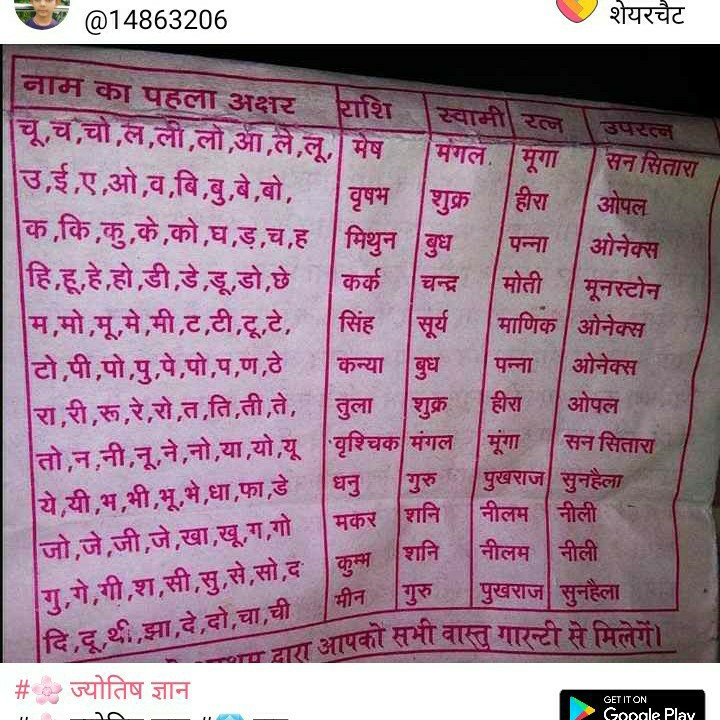 @14863206
शेयरचैट
नाम का पहला अक्षर राशि स्वामी रत्न उपरत्न
चू,च,चो,ल,ली,लो,आ,ले,लू, मेष मंगल. मूंगा सन सितारा
उ,ई,ए,ओ,व,बि,बु,बे,बो, वृषभ शुक्र हीरा ओपल
क,कि,कु,के,को,घ,ड़,च,ह मिथुन बुध पन्ना ओनेक्स
हि,हू,हे,हो,डी,डे,डू,डो,छे कर्क चन्द्र मोती मूनस्टोन
म,मो,मू,मे,मी,ट,टी,टू,टे, सिंह सूर्य माणिक ओनेक्स
टो,पी,पो,पु,पे,पो,प,ण,ठे कन्या बुध पन्ना ओनेक्स
रा,री,रू,रे,रो,त,ति,ती,ते, तुला शुक्र हीरा ओपल
तो,न,नी,नू,ने,नो,या,यो,यू वृश्चिक मंगल मूंगा सन सितारा
ये,यी,भ,भी,भू,भे,धा,फा,डे धनु गुरु पुखराज सुनहैला
जो,जे,जी,जे,खा,खू,ग,गो मकर शनि नीलम नीली
गु,गे,गी,श,सी,सु,से,सो,द कुम्भ शनि नीलम नीली
दि,दू,थ,झा,दे,दो,चा,ची मीन गुरु पुखराज सुनहैला
द्वारा आपको सभी वास्तु गारन्टी से मिलेगें।
# ज्योतिष ज्ञान
GET IT ON
Google Play